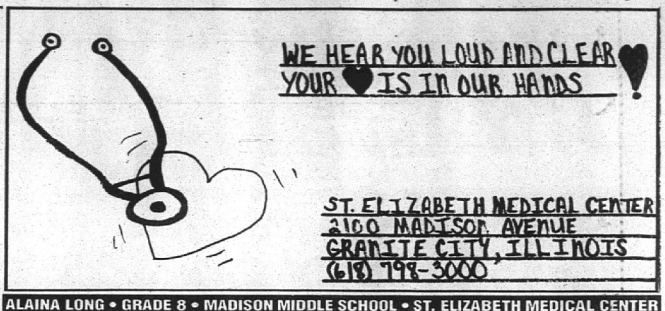 WE HEAR YOU LOUD AND CLEAR
YOUR ♥ IS IN OUR HANDS
ST. ELIZABETH MEDICAL CENTER
2100 MADISON AVENUE
GRANITE CITY, ILLINOIS
(618) 798-3000
ALAINA LONG • GRADE 8 • MADISON MIDDLE SCHOOL • ST. ELIZABETH MEDICAL CENTER